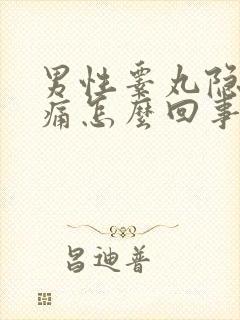 男性睾丸隐
痛怎麽回事
昌迪普